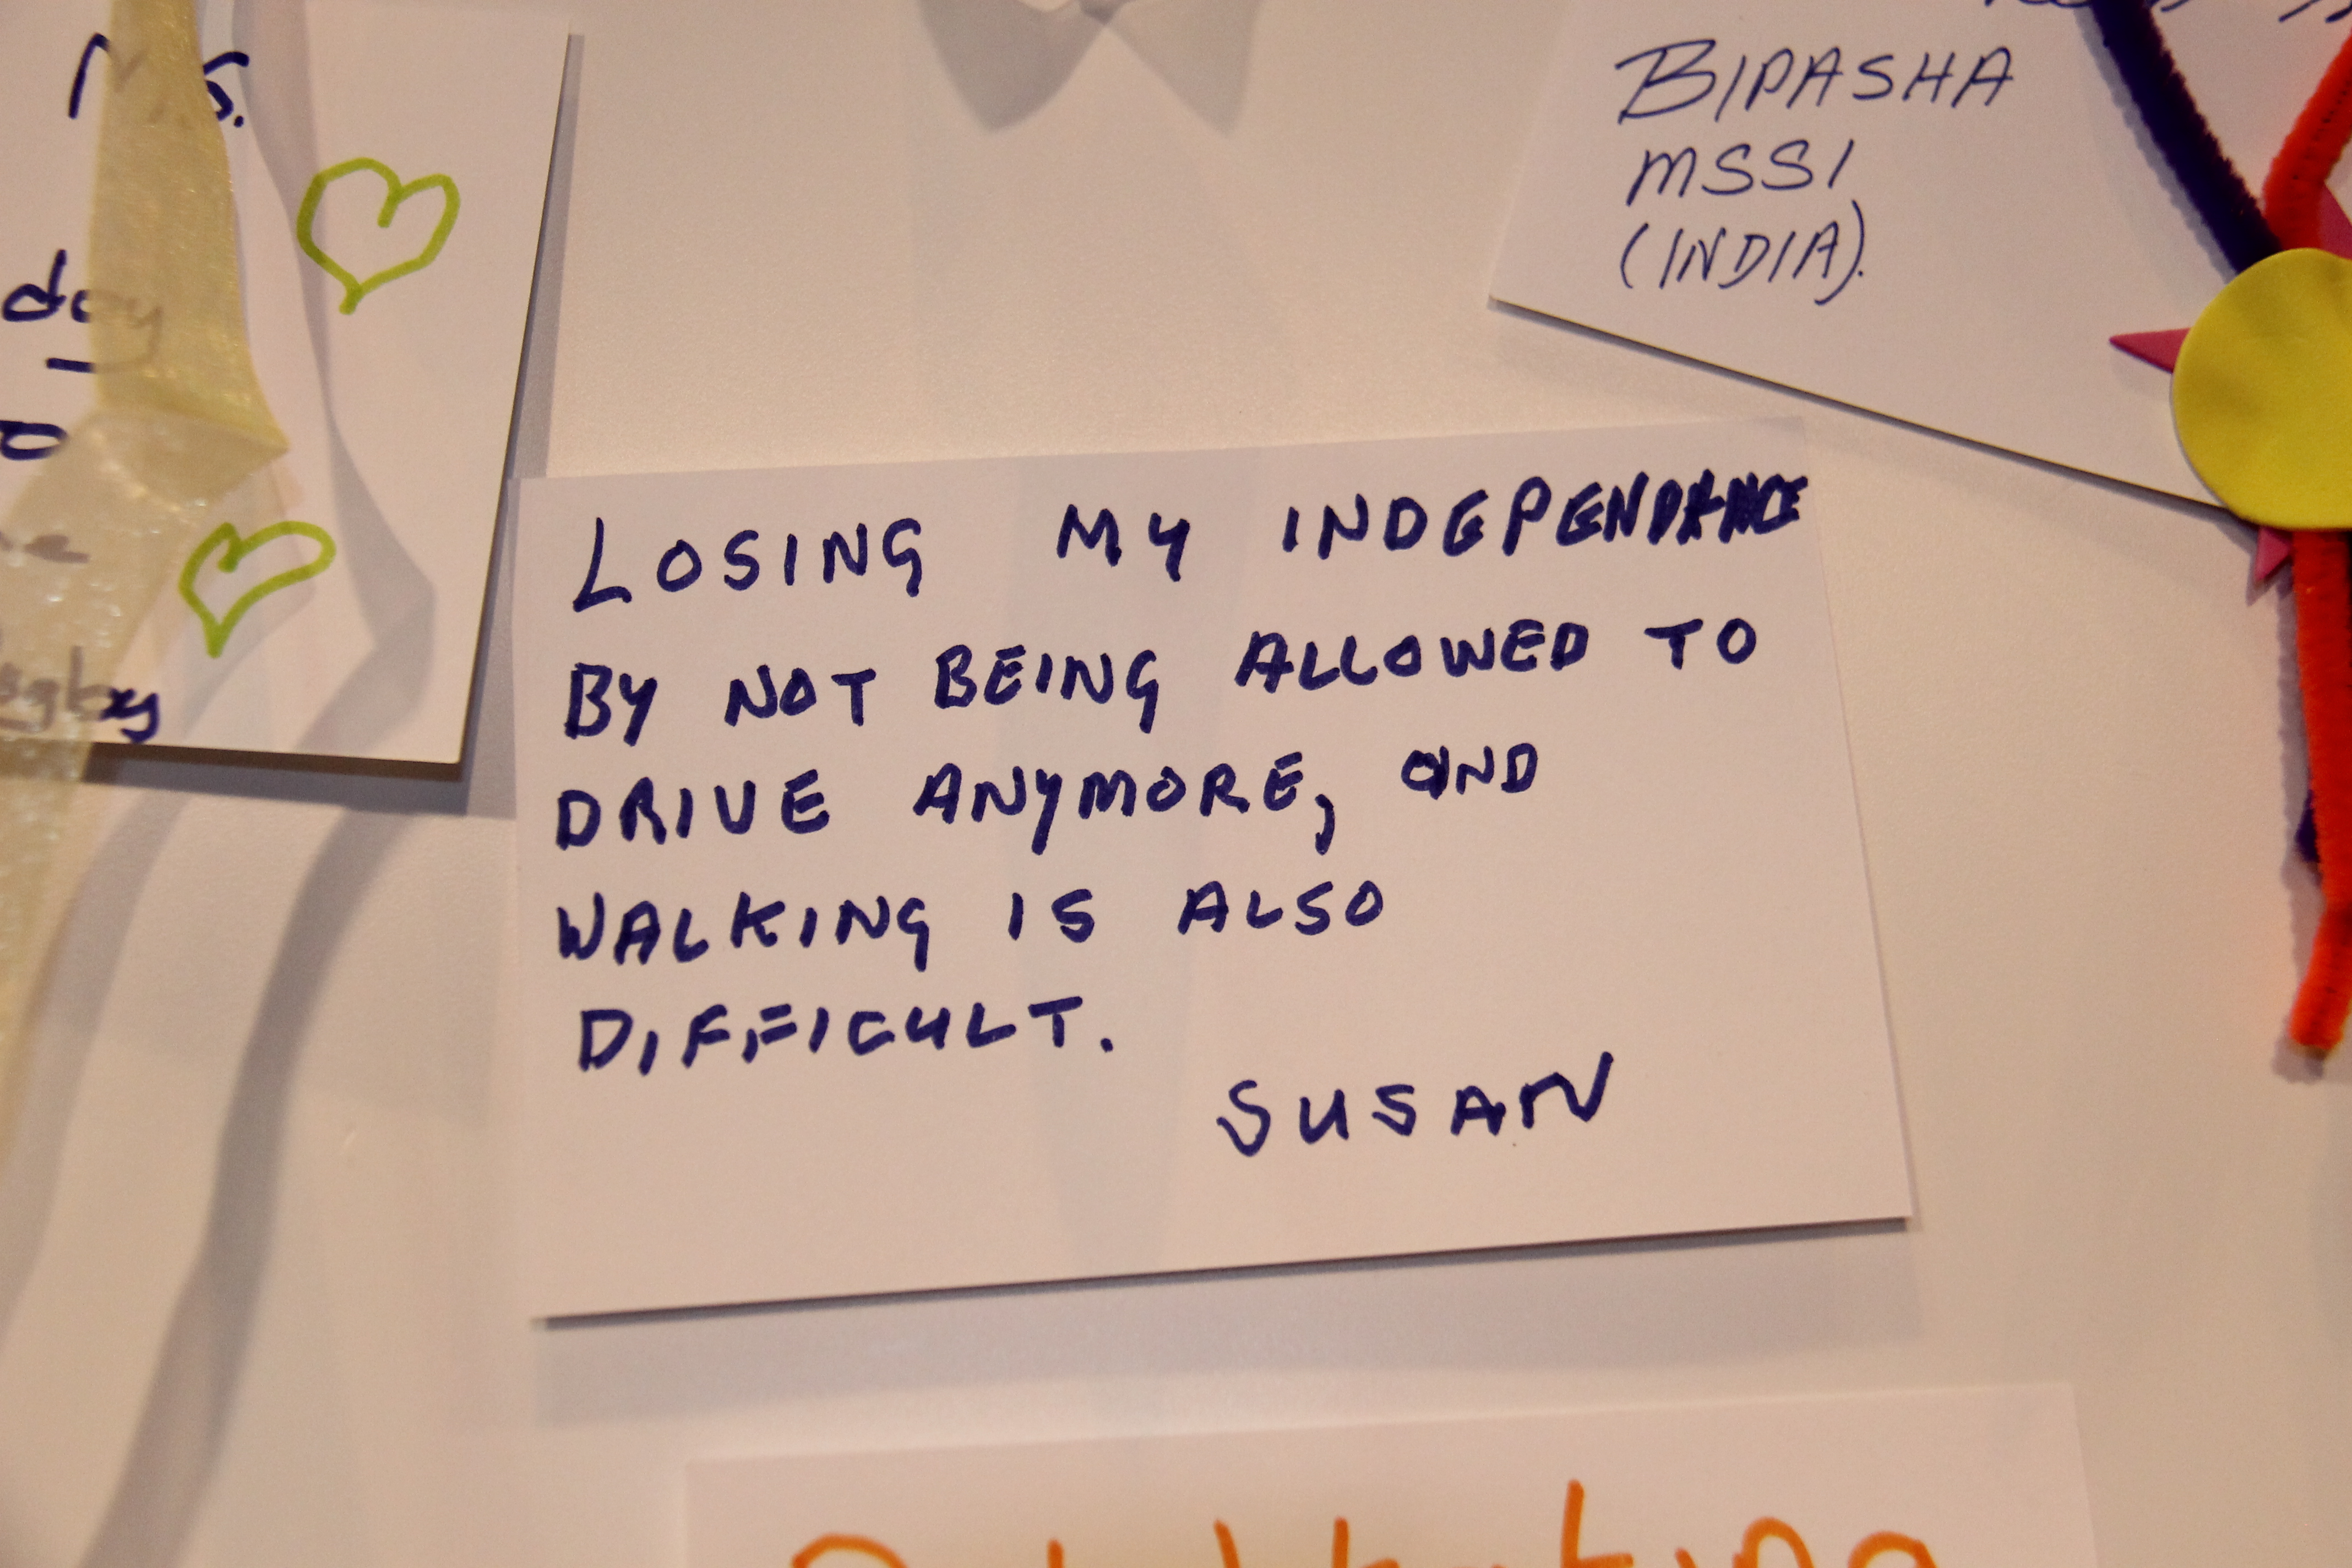 M.S.
day
BIPASHA
MSSI
(INDIA).
LOSING MY INDEPENDANCE
BY NOT BEING ALLOWED TO
DRIVE ANYMORE, AND
WALKING IS ALSO
DIFFICULT.
SUSAN